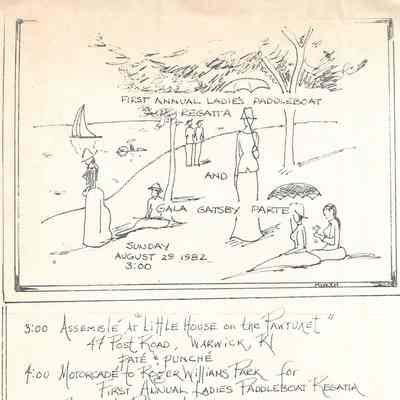 FIRST ANNUAL LADIE'S PADDLEBOAT
REGATTA
AND
GALA GATSBY PARTE
SUNDAY
AUGUST 29 1982
3:00
3:00 ASSEMBLE AT "LITTLE HOUSE ON THE PAWTUXET"
47 POST ROAD, WARWICK, RI
PATÉ & PUNCHE
4:00 MOTORCADE TO ROGER WILLIAMS PARK for
FIRST ANNUAL LADIES PADDLEBOAT REGATTA